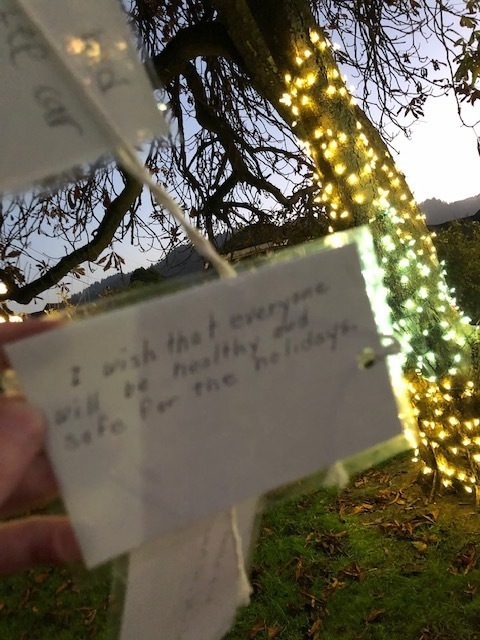 car
I wish that everyone
will be healthy and
safe for the holidays.